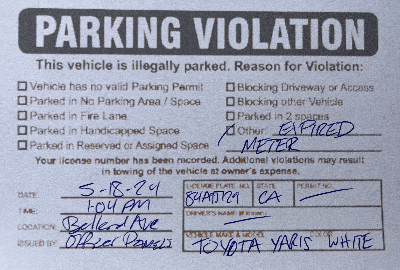 PARKING VIOLATION
This vehicle is illegally parked. Reason for Violation:
Vehicle has no valid Parking Permit
Parked in No Parking Area / Space
Parked in Fire Lane
Parked in Handicapped Space
Parked in Reserved or Assigned Space
Blocking Driveway or Access
Blocking other Vehicle
Parked in 2 spaces
Other: EXPIRED
METER
Your license number has been recorded. Additional violations may result
in towing of the vehicle at owner's expense.
DATE: 5-18-24
TIME: 1:04 AM
LOCATION: Ave
ISSUED BY: Officer Daniels
LICENSE PLATE NO.
STATE CA
PERMIT NO.
DRIVER'S NAME (IF KNOWN)
VEHICLE MAKE & MODEL COLOR
TOYOTA YARIS WHITE